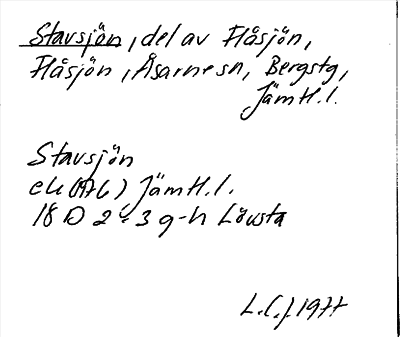 Stavsjön, del av Flåsjön,
Flåsjön, Åsarne sn, Bergstg,
Jämtl.l.
Stavsjön
ek (1976) Jämtl.l.
18 D 2-3 g-h Lövsta
L.C.J. 1977